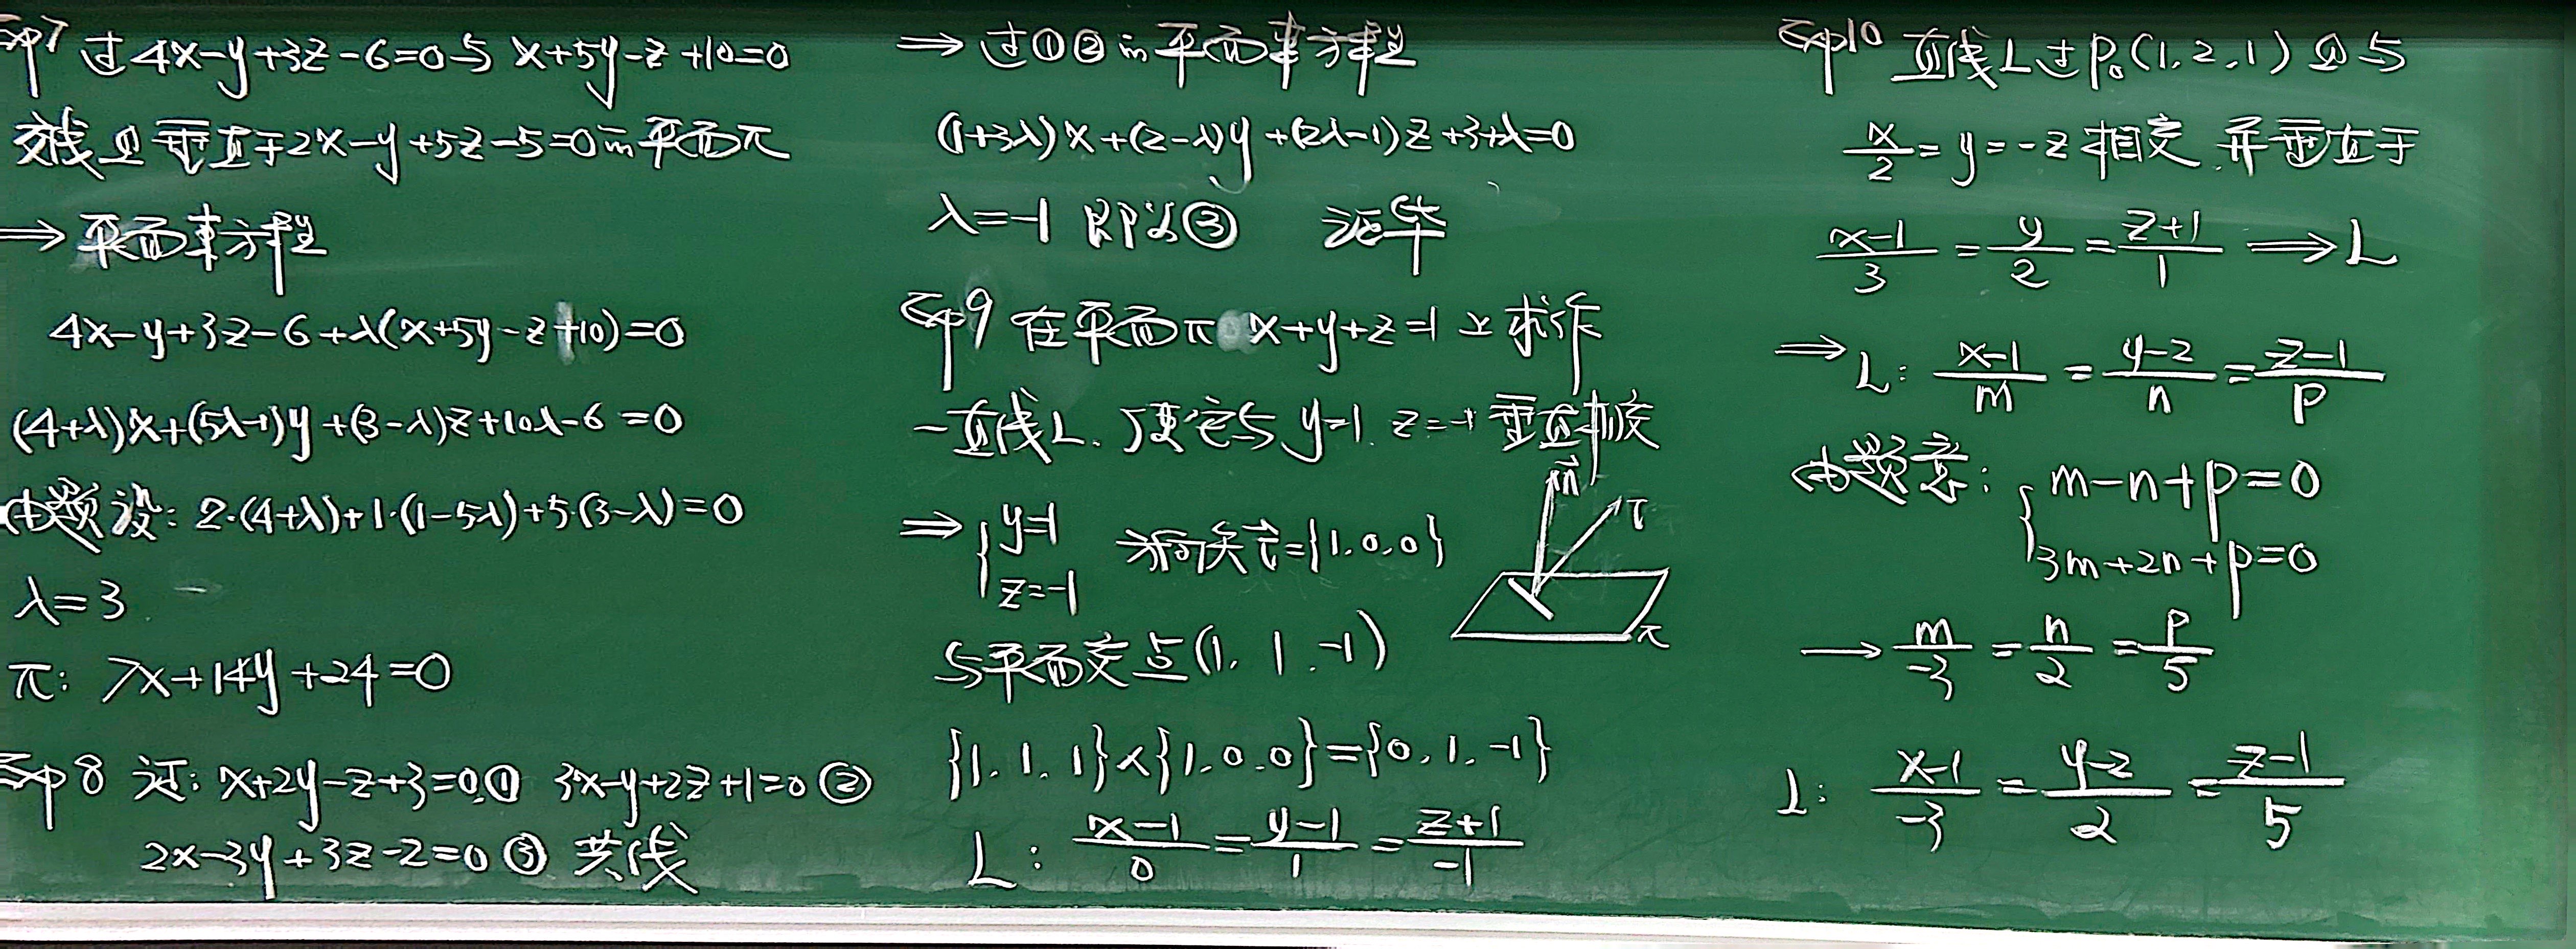 Exp7 过4x-y+3z-6=0与 x+5y-z+10=0
交线且垂直于2x-y+5z-5=0的平面π
⇒ 平面束方程
4x-y+3z-6+λ(x+5y-z+10)=0
(4+λ)x+(5λ-1)y+(3-λ)z+10λ-6=0
由题设: 2·(4+λ)+1·(1-5λ)+5·(3-λ)=0
λ=3
π: 7x+14y+24=0
Exp8 证: x+2y-z+3=0① 3x-y+2z+1=0②
2x-3y+3z-2=0③ 共线
⇒ 过①②的平面束方程
(1+3λ)x+(2-λ)y+(2λ-1)z+3+λ=0
λ=-1 即为③ 证毕
Exp9 在平面π x+y+z=1上求作
一直线L, 使它与 y=1, z=-1 垂直相交
⇒ {y=1
z=-1 方向矢τ⃗={1,0,0}
n⃗
τ
π
与平面交点(1, 1, -1)
{1, 1, 1}×{1,0,0}={0,1,-1}
L: (x-1)/0=(y-1)/1=(z+1)/-1
Exp10 直线L过P₀(1,2,1)且与
x/2=y=-z相交,并垂直于
(x-1)/3=y/2=(z+1)/1 ⇒L
⇒L: (x-1)/m=(y-2)/n=(z-1)/p
由题意: {m-n+p=0
3m+2n+p=0
→ m/-3=n/2=p/5
L: (x-1)/-3=(y-2)/2=(z-1)/5